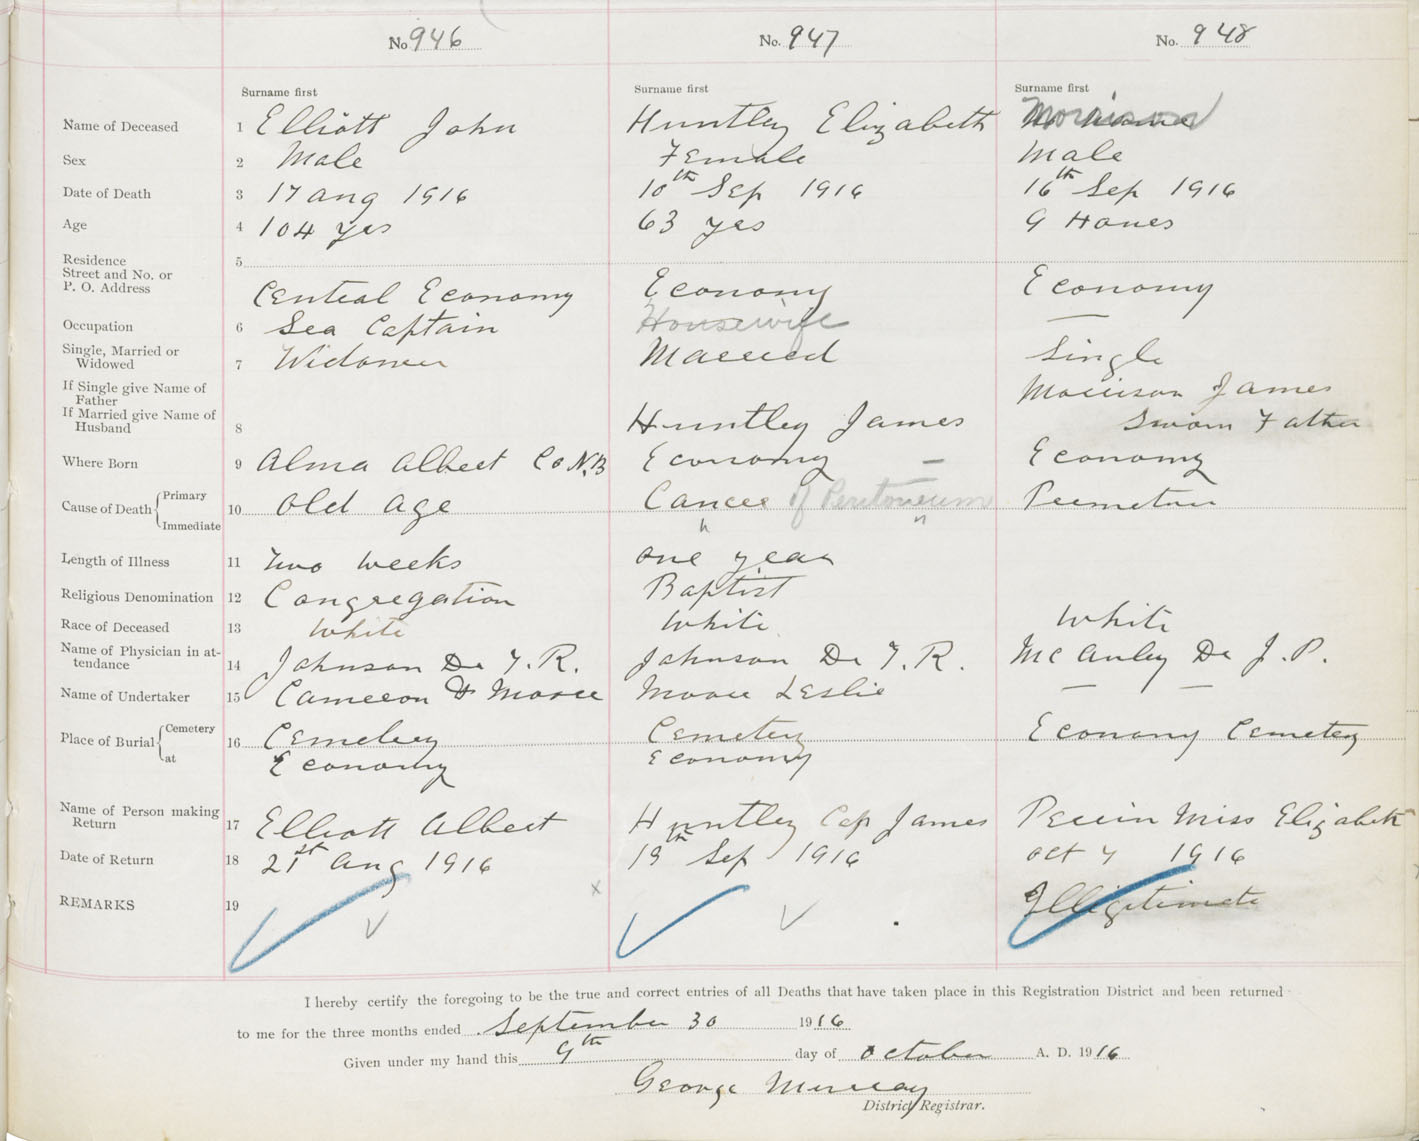 No 946 No. 947 No. 948
Surname first Surname first Surname first
Name of Deceased 1 Elliott John Huntley Elizabeth Morrison
Sex 2 Male Female Male
Date of Death 3 17 aug 1916 10th Sep 1916 16th Sep 1916
Age 4 104 yrs 63 yrs 9 Hours
Residence 5
Street and No. or
P. O. Address Central Economy Economy Economy
Occupation 6 Sea Captain Housewife —
Single, Married or
Widowed 7 Widower Married Single
If Single give Name of
Father Morrison James
If Married give Name of
Husband 8 Huntley James Sworn Father
Where Born 9 Alma Albert Co N.B Economy – Economy
Cause of Death { Primary
Immediate 10 old age Cancer of Peritoneum
" "
Length of Illness 11 Two weeks one year
Religious Denomination 12 Congregation Baptist
Race of Deceased 13 White White White
Name of Physician in at-
tendance 14 Johnson Dr T. R. Johnson Dr T. R. McAuley Dr J. P.
Name of Undertaker 15 Cameron & Moore Moore Leslie — —
Place of Burial { Cemetery
at 16 Cemetery Cemetery Economy Cemetery
Economy Economy
Name of Person making
Return 17 Elliott Albert Huntley Cap James Perrin Miss Elizabeth
Date of Return 18 21st Aug 1916 19th Sep 1916 oct 7 1916
REMARKS 19 x Illigetimate
I hereby certify the foregoing to be the true and correct entries of all Deaths that have taken place in this Registration District and been returned
to me for the three months ended September 30 1916
Given under my hand this 9th day of October A. D. 1916
George Murray
District Registrar.